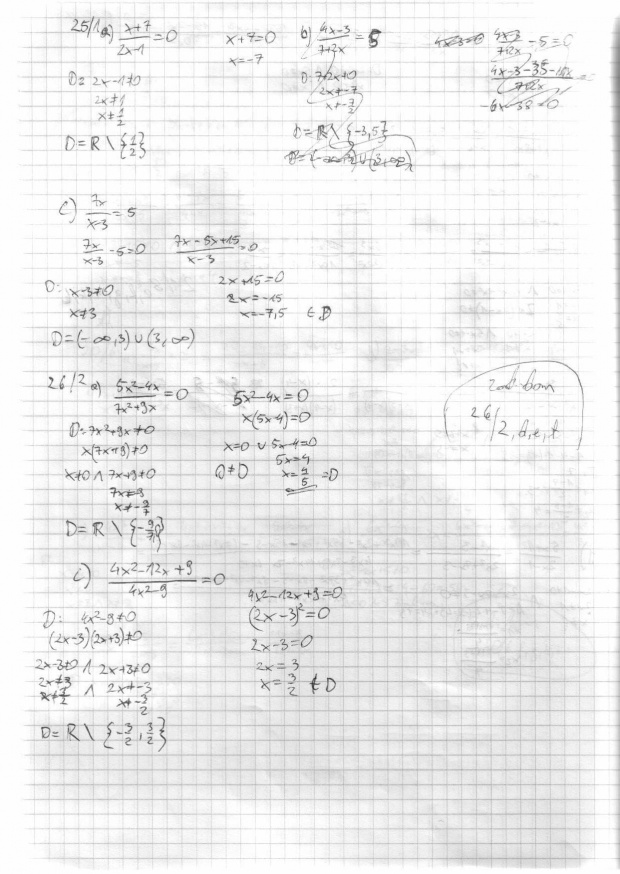 25/1 a) x+7/2x-1 = 0
x+7=0
x=-7
D= 2x-1≠0
2x≠1
x≠1/2
D=R\{1/2}
b) 4x-3/7+2x = 5
D: 7+2x≠0
2x≠-7
x≠-7/2
D=R\{-3,5}
4x-3/7+2x -5=0
-6x-38=0
c) 7x/x-3 = 5
7x/x-3 -5=0
7x-5x+15/x-3 =0
D: x-3≠0
x≠3
D=(-∞,3)∪(3,∞)
2x+15=0
2x=-15
x=-7,5 ∈D
26/2 a) 5x²-4x/7x²+9x = 0
D=7x²+9x≠0
x(7x+9)≠0
x≠0 ∧ 7x+9≠0
7x≠-9
x≠-9/7
D=R\{-9/7,0}
5x²-4x=0
x(5x-4)=0
x=0 ∪ 5x-4=0
0≠D
5x=4
x=4/5 =D
26/2,d,e,f
c) 4x²-12x+9/4x²-9 = 0
D: 4x²-9≠0
(2x-3)(2x+3)≠0
2x-3≠0 ∧ 2x+3≠0
2x≠3 ∧ 2x≠-3
x≠-3/2
D=R\{-3/2,3/2}
4x²-12x+9=0
(2x-3)²=0
2x-3=0
2x=3
x=3/2 ∉D